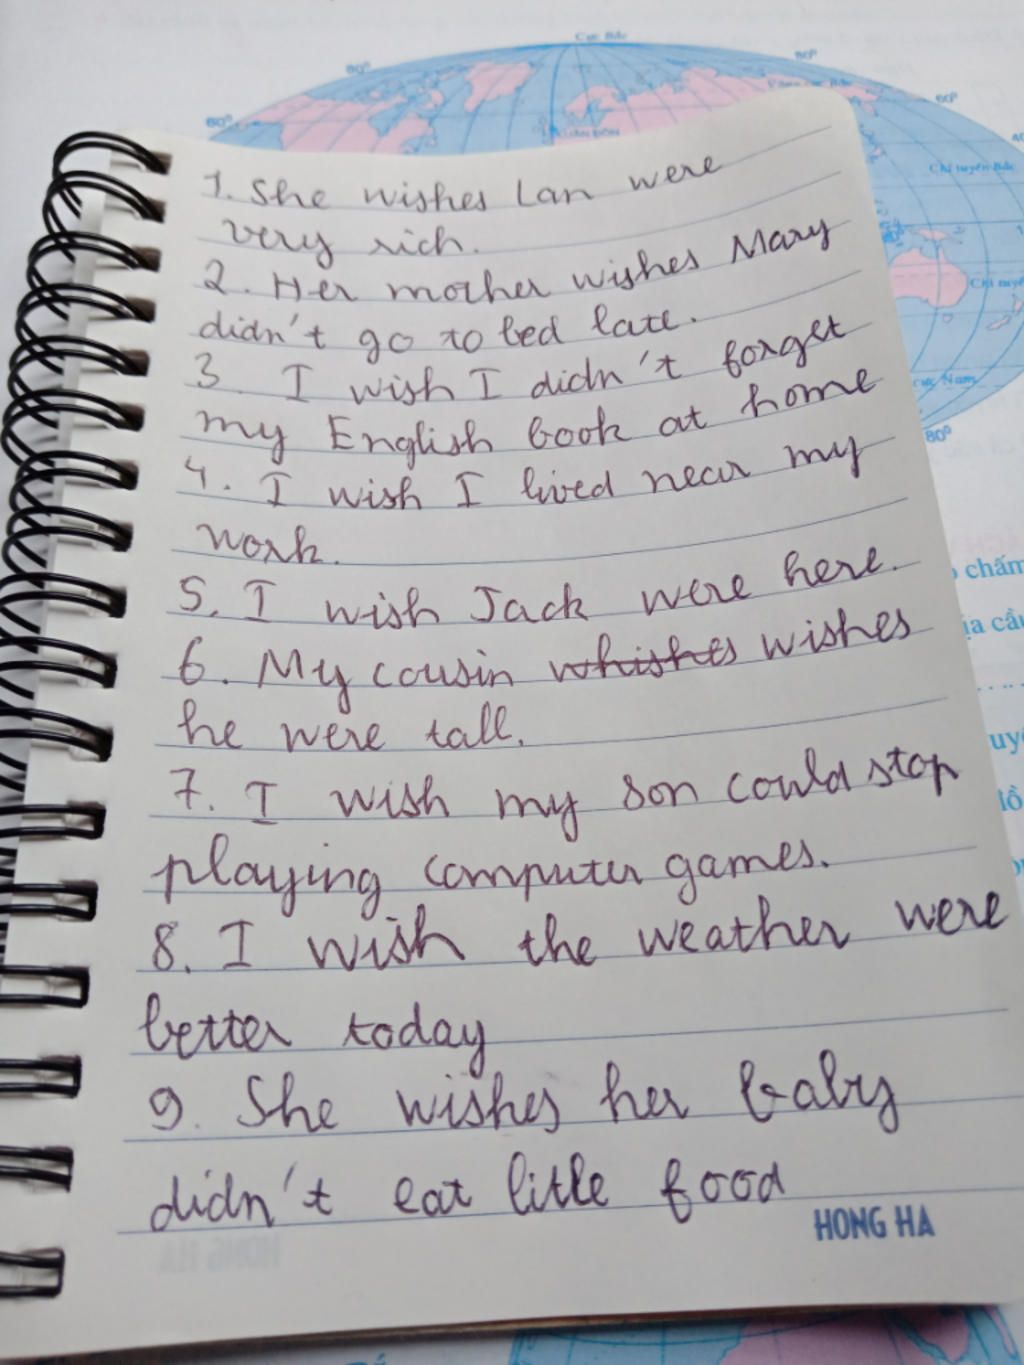 Cực Bắc
80°
80°
60°
60°
Chí tuyến Bắc
1. She wishes Lan were
very rich.
2. Her mother wishes Mary
didn't go to bed late.
3. I wish I didn't forget
my English book at home
4. I wish I lived near my
work.
5. I wish Jack were here.
6. My cousin whishes wishes
he were tall.
7. I wish my son could stop
playing computer games.
8. I wish the weather were
better today
9. She wishes her baby
didn't eat litle food
HONG HA
80°
chấm